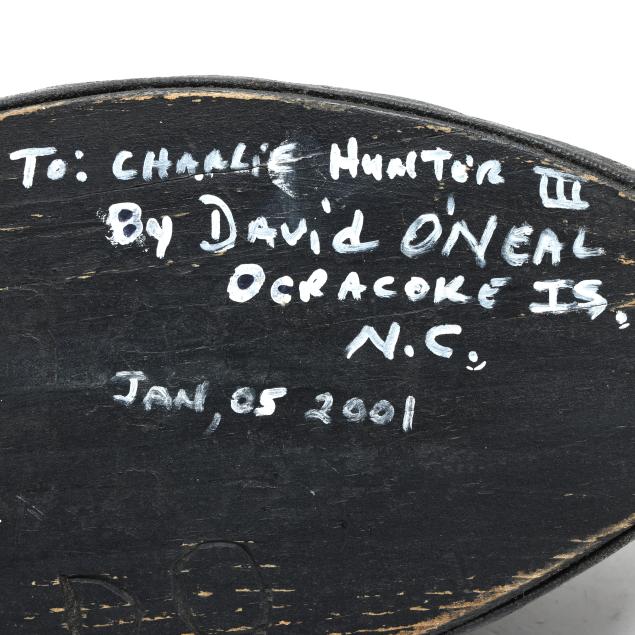 To: CHARLIE HUNTER III
By DAVid O'NEAL
OCRACOKE IS.
N.C.
JAN, 05 2001
DO